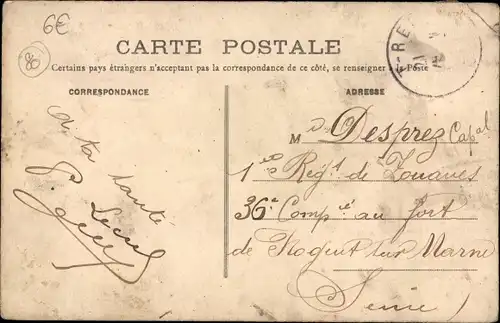 6€
80
CARTE POSTALE
Certains pays étrangers n'acceptant pas la correspondance de ce côté, se renseigner à la Poste
CORRESPONDANCE
ADRESSE
à ta santé
M Desprez Cap.al
1er Regt. de Zouaves
36e Compie au fort
de Nogent sur Marne
Seine)